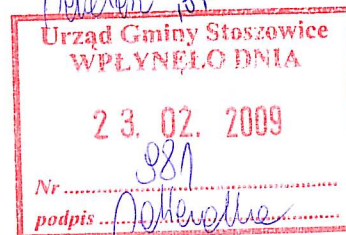 Urząd Gminy Stoszowice
WPŁYNĘŁO DNIA
23. 02. 2009
Nr ..... 981 .....
podpis .....